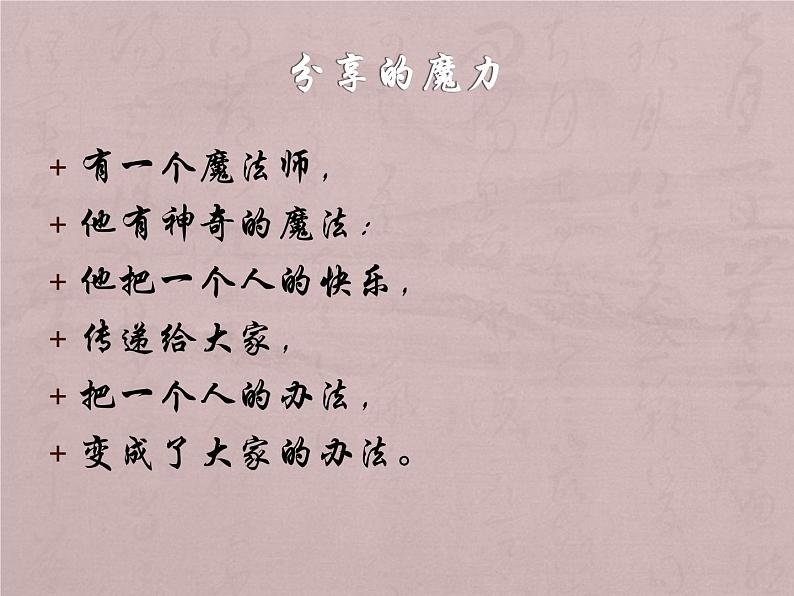 分享的魔力
+ 有一个魔法师，
+ 他有神奇的魔法：
+ 他把一个人的快乐，
+ 传递给大家，
+ 把一个人的办法，
+ 变成了大家的办法。